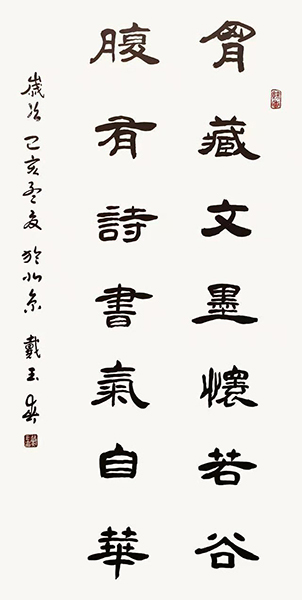 胷藏文墨懷若谷
腹有詩書氣自華
歲次己亥孟夏於北京 戴玉